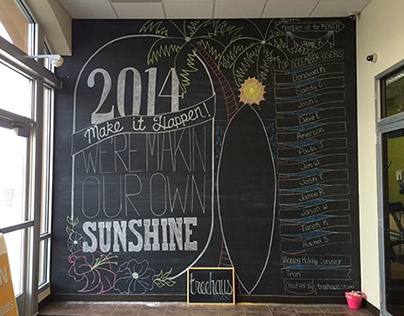 2014
Make it Happen!
WE'RE MAKIN'
OUR OWN
SUNSHINE
treehaus
Member of the MONTH
TOP DECEMBER USERS!
Donovan N.
Sandy C.
Josh C.
Dave L.
Amerson
Paula J.
Jim W.
Josh T.
Jamie K.
Jason W.
Tarek K.
Rachel S.
Holiday Survivor
Team